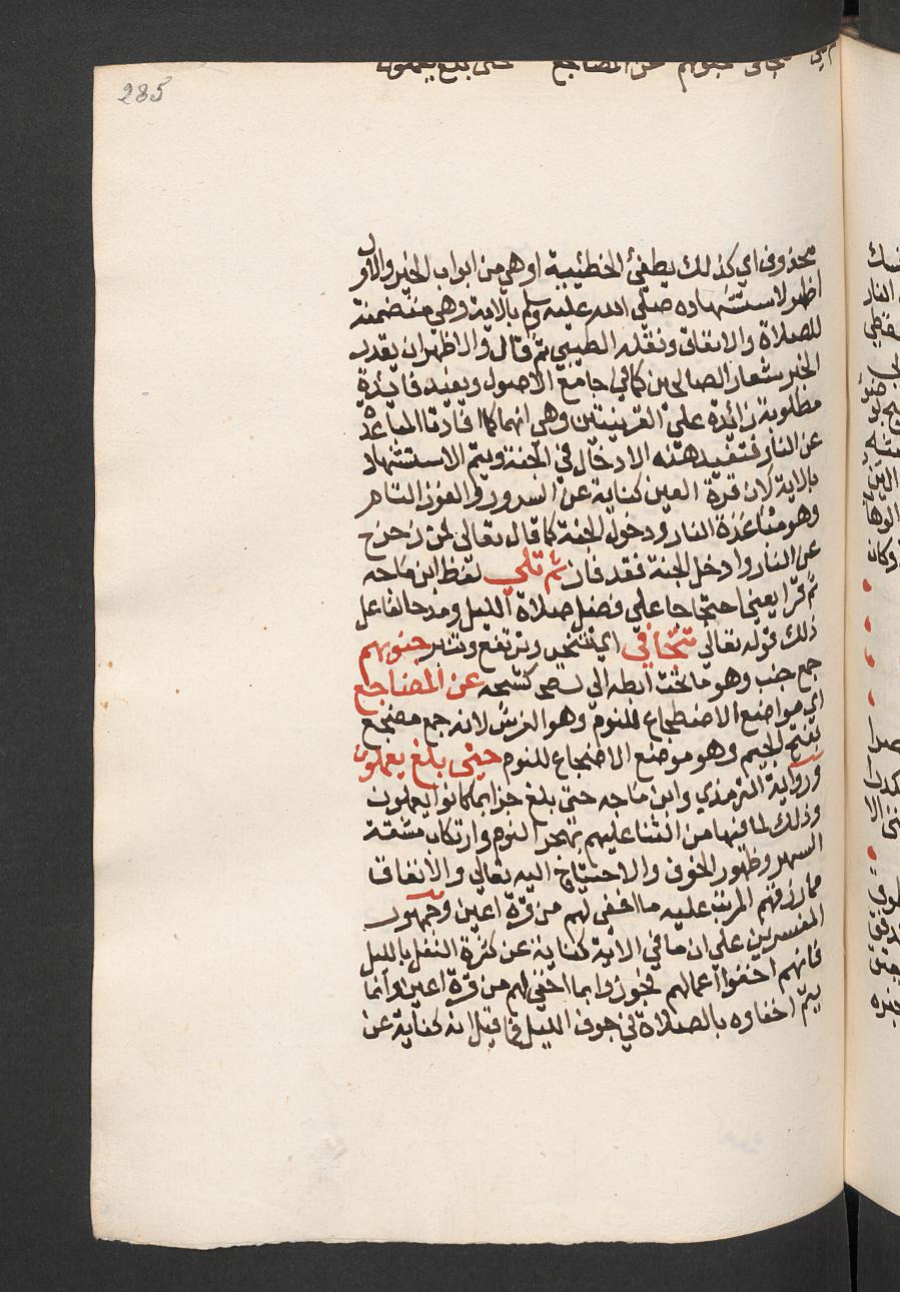 285
تتجافى جنوبهم عن المضاجع حتى بلغ يعملون
محذوف اي كذلك يطفئ الخطيئة او هي من ابواب الخير والاول
اظهر لاستشهاده صلى الله عليه وسلم بالاية وهي متضمنة
للصلاة والانفاق ونقله الطيبي ثم قال والاظهر ان يقدر
الخبر شعار الصالحين كما في جامع الاصول ويفيد فايدة
مطلوبة زائدة على القرينتين وهي انهما كما افادتا المباعدة
عن النار فتفيد هذه الادخال في الجنة ويتم الاستشهاد
بالاية لان قرة العين كناية عن السرور والفوز التام
وهو مباعدة النار ودخول الجنة كما قال تعالى فمن زحزح
عن النار وادخل الجنة فقد فاز ثم تلى لفظ ابن ماجه
ثم قرا يعني احتجاجا على فضل صلاة الليل ومدحا لفاعل
ذلك قوله تعالى تتجافى اي تتنحى وترتفع جنوبهم
جمع جنب وهو ما تحت ابطه الى كشحه عن المضاجع
اي مواضع الاضطجاع للنوم وهو الفرش لانه جمع مضجع
بفتح الجيم وهو موضع الاضجاع للنوم حتى بلغ يعملون
ورواية الترمذي وابن ماجه حتى بلغ جزا بما كانوا يعملون
وذلك لما فيها من الثنا عليهم بهجر النوم وارتكاب مشقة
السهر وظهور الخوف والاحتياج اليه تعالى والانفاق
مما رزقهم المرتب عليه ما اخفى لهم من قرة اعين وجمهور
المفسرين على ان ما في الاية كناية عن كثرة النفل بالليل
فانهم اخفوا اعمالهم فجوزوا بما اخفي لهم من قرة اعين وانما
يتم اخفاوه بالصلاة في جوف الليل فما قيل انه كناية عن